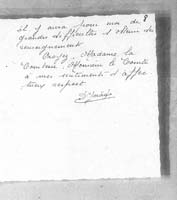 8
il y aura pour moi de
grandes difficultés à obtenir des
renseignements.
Croyez, Madame la
Comtesse, Monsieur le Comte
à mes sentiments d'affec
tueux respect.